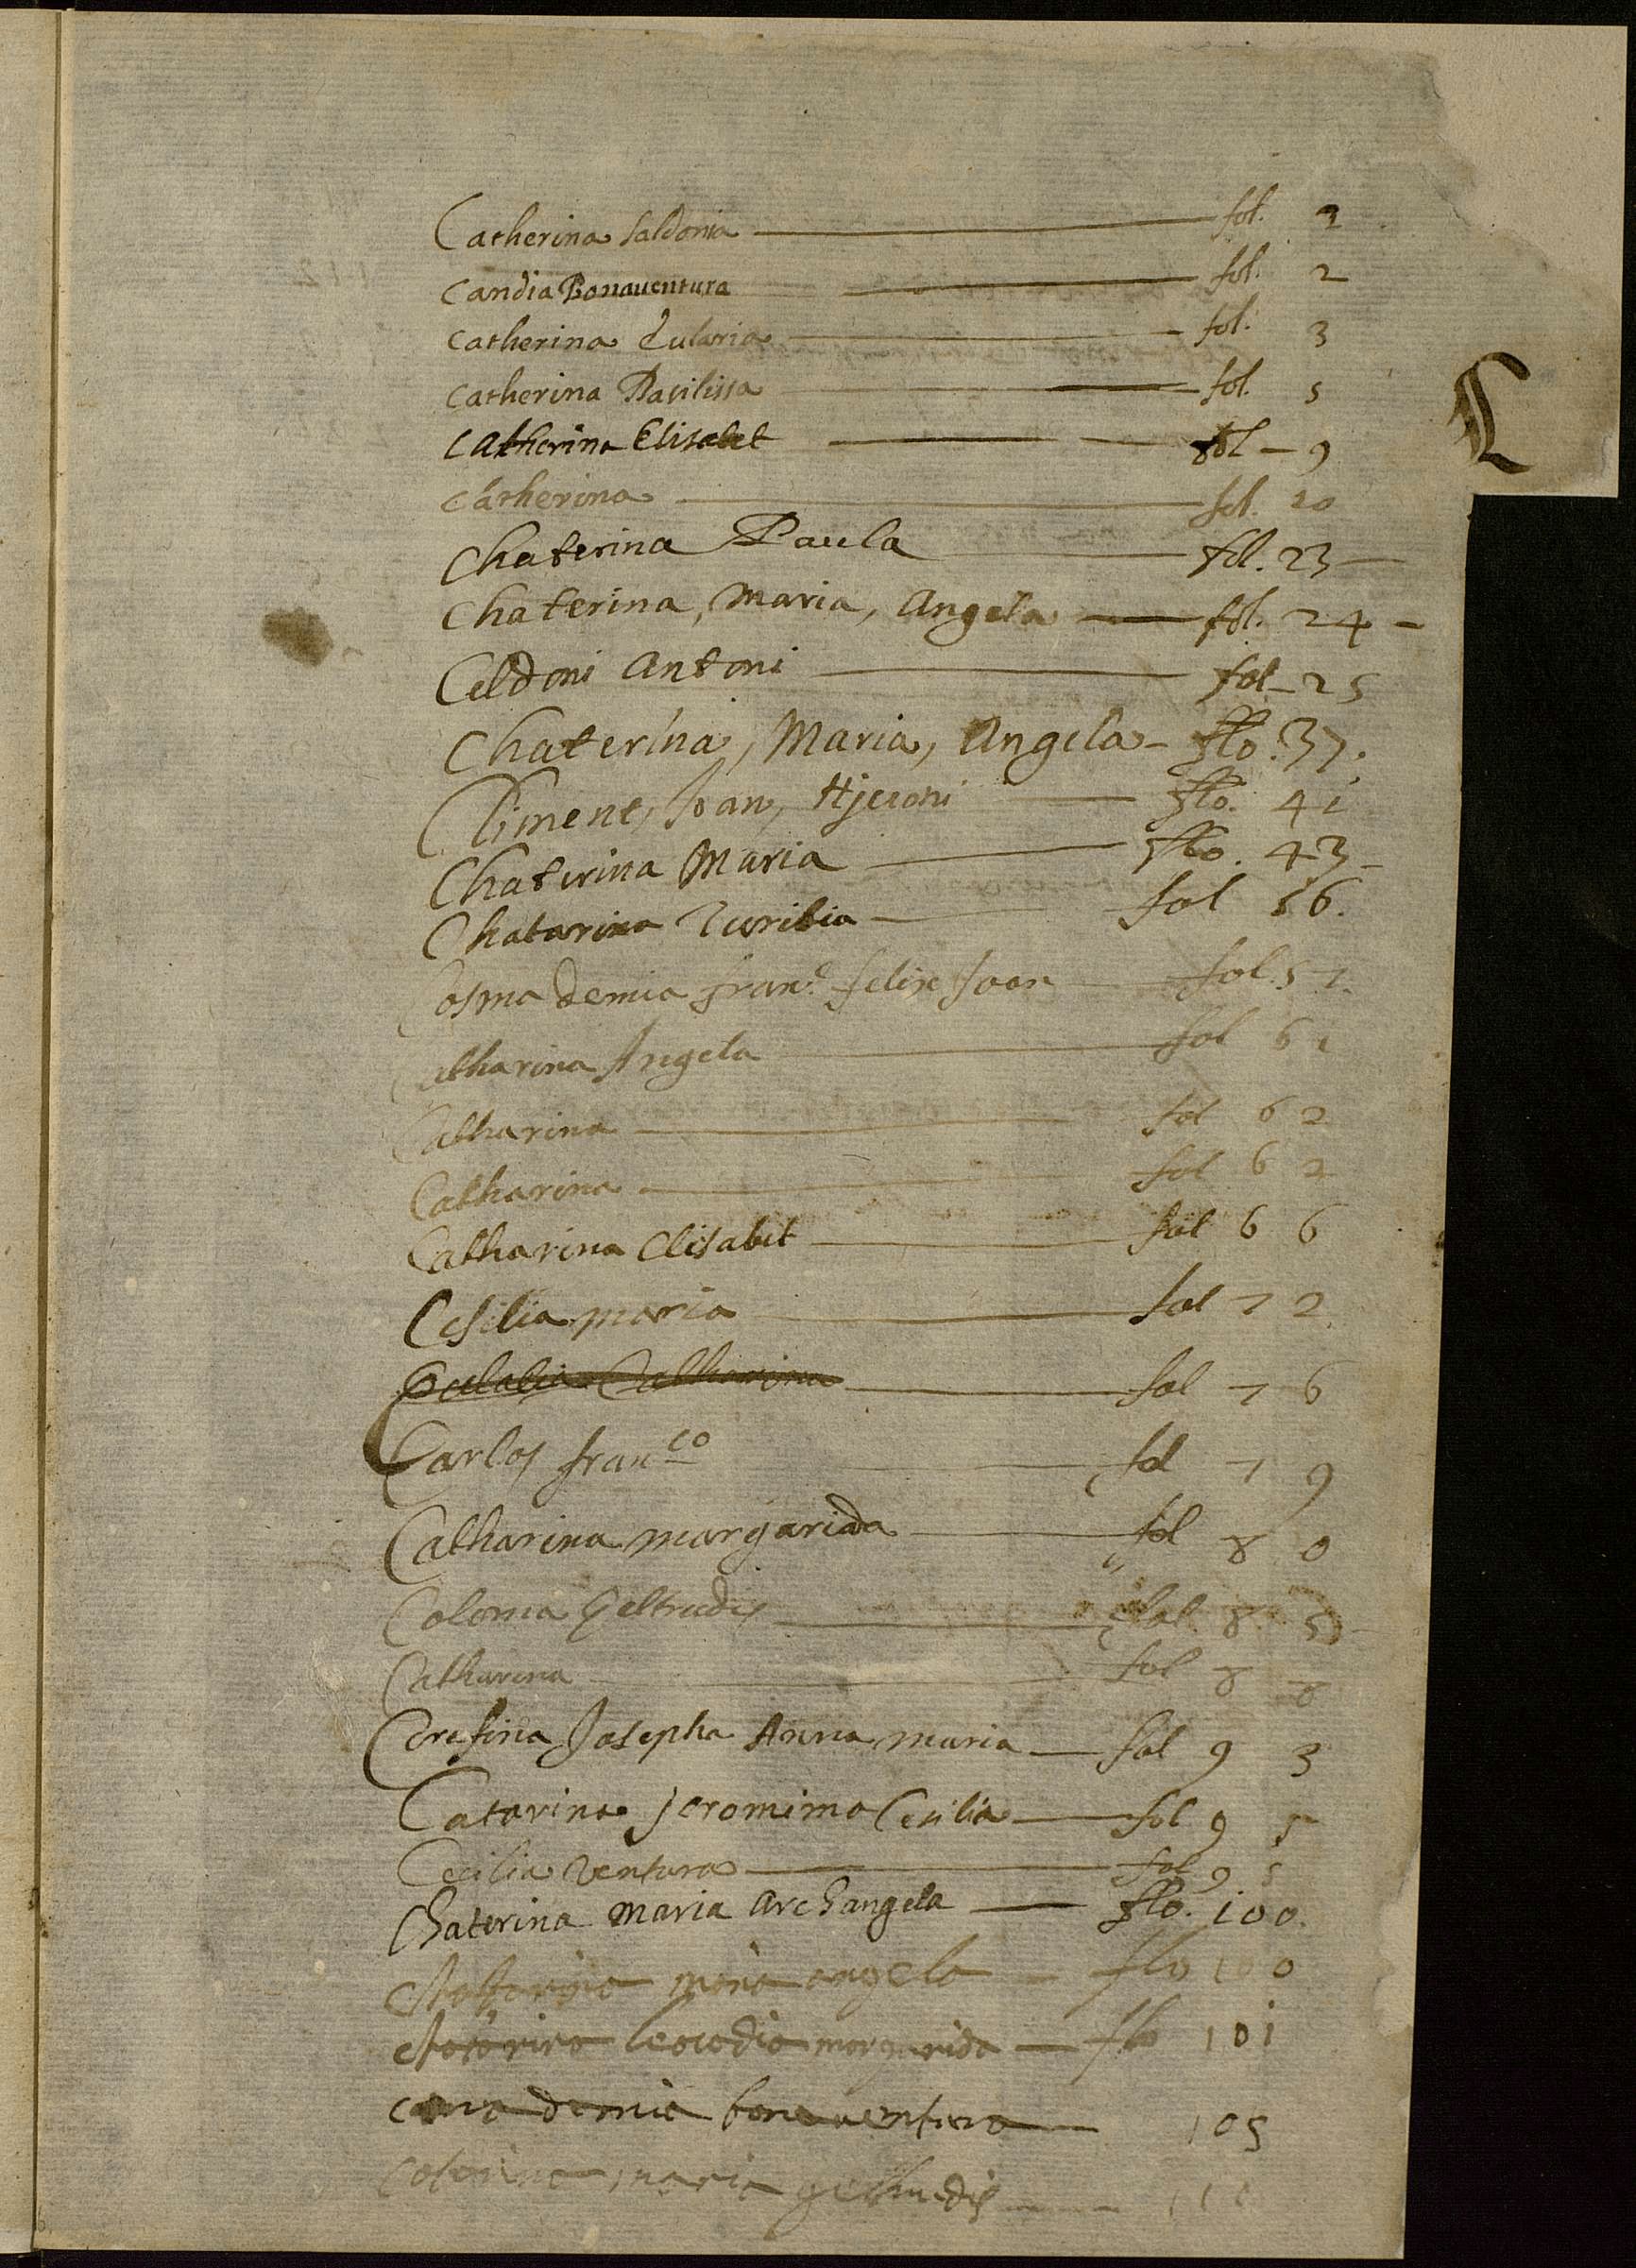 Catherina Saldonia fol. 2
Candia Bonaventura fol. 2
Catherina Eularia fol. 3
Catherina Basilissa fol. 5
C
Catherina Elisabet fol 9
Catherina fol. 20
Chaterina Paula fol. 23
Chaterina, Maria, Angela fol. 24
Celdoni Antoni fol 25
Chaterina, Maria, Angela flo. 37.
Climent, Joan, Hjeroni flo. 41
Chaterina Maria flo. 43
Chatarina Turibia fol 56.
Cosma demia fran.^c felix Joan fol. 57.
Catharina Angela fol 61
Catharina fol 62
Catharina fol 62
Catharina Elisabet fol 66
Cesilia maria fol 72
Eulalia Catharina fol 76
Carlos fran^co fol 79
Catharina margarida fol 80
Coloma Geltrudis fol. 85
Catharina fol 8
Crefina Josepha Anna maria fol 93
Catarina Jeromima Cesilia fol 95
Cecilia Ventura fol 95
Chaterina Maria Archangela flo. 100.
maria angela flo 100
leocodia margarida flo 101
demia bonaventura 105
maria geltrudis